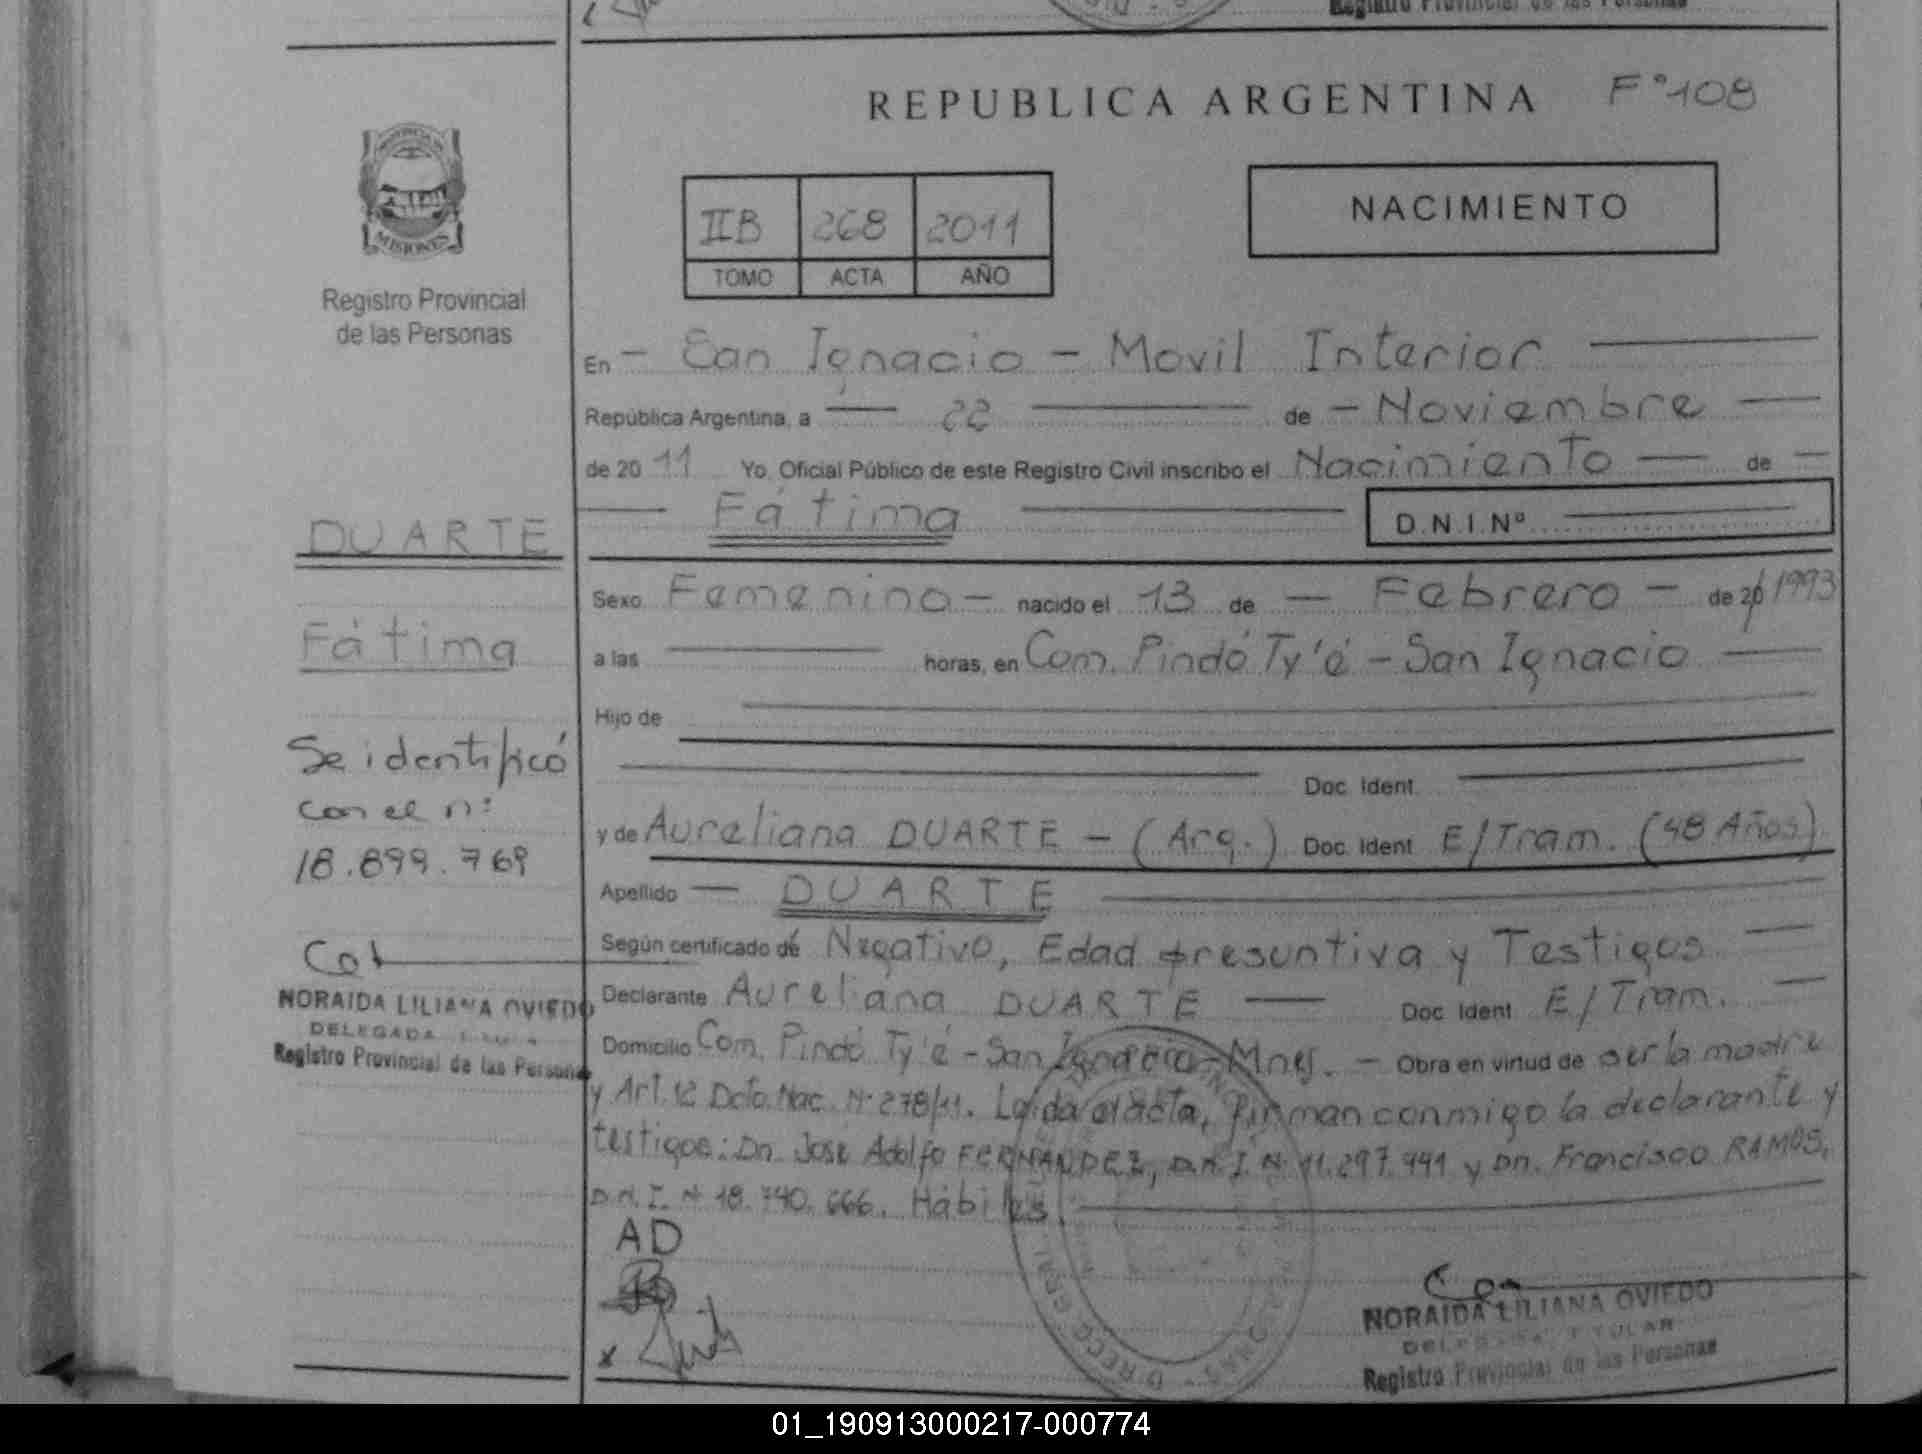 Registro Provincial de las Personas
REPUBLICA ARGENTINA F° 108
PROVINCIA
MISIONES
Registro Provincial
de las Personas
IIB 268 2011
TOMO ACTA AÑO
NACIMIENTO
En - San Ignacio - Movil Interior
República Argentina, a 22 de - Noviembre
de 2011 Yo, Oficial Público de este Registro Civil inscribo el Nacimiento de
Fátima D.N.I.Nº
DUARTE
Fátima
Se identificó
con el nº
18.899.769
NORAIDA LILIANA OVIEDO
DELEGADA
Registro Provincial de las Personas
Sexo Femenino - nacido el 13 de - Febrero - de 20 1993
a las horas, en Com. Pindó Ty'é - San Ignacio
Hijo de
Doc. Ident.
y de Aureliana DUARTE - (Arg.) Doc. Ident E/Tram. (48 Años)
Apellido DUARTE
Según certificado de Negativo, Edad presuntiva y Testigos
Declarante Aureliana DUARTE Doc. Ident E/Tram.
Domicilio Com. Pindó Ty'é - San Ignacio - Mnes. - Obra en virtud de ser la madre
y Art. 12 Dcto. Nac. Nº 278/11. Leida el acta, firman conmigo la declarante y
testigos: Dn. Jose Adolfo FERNANDEZ, D.N.I. Nº 11.297.441 y Dn. Francisco RAMOS,
D.N.I. Nº 18.740.666. Hábiles.
AD
NORAIDA LILIANA OVIEDO
DELEGADA TITULAR
Registro Provincial de las Personas
01_190913000217-000774